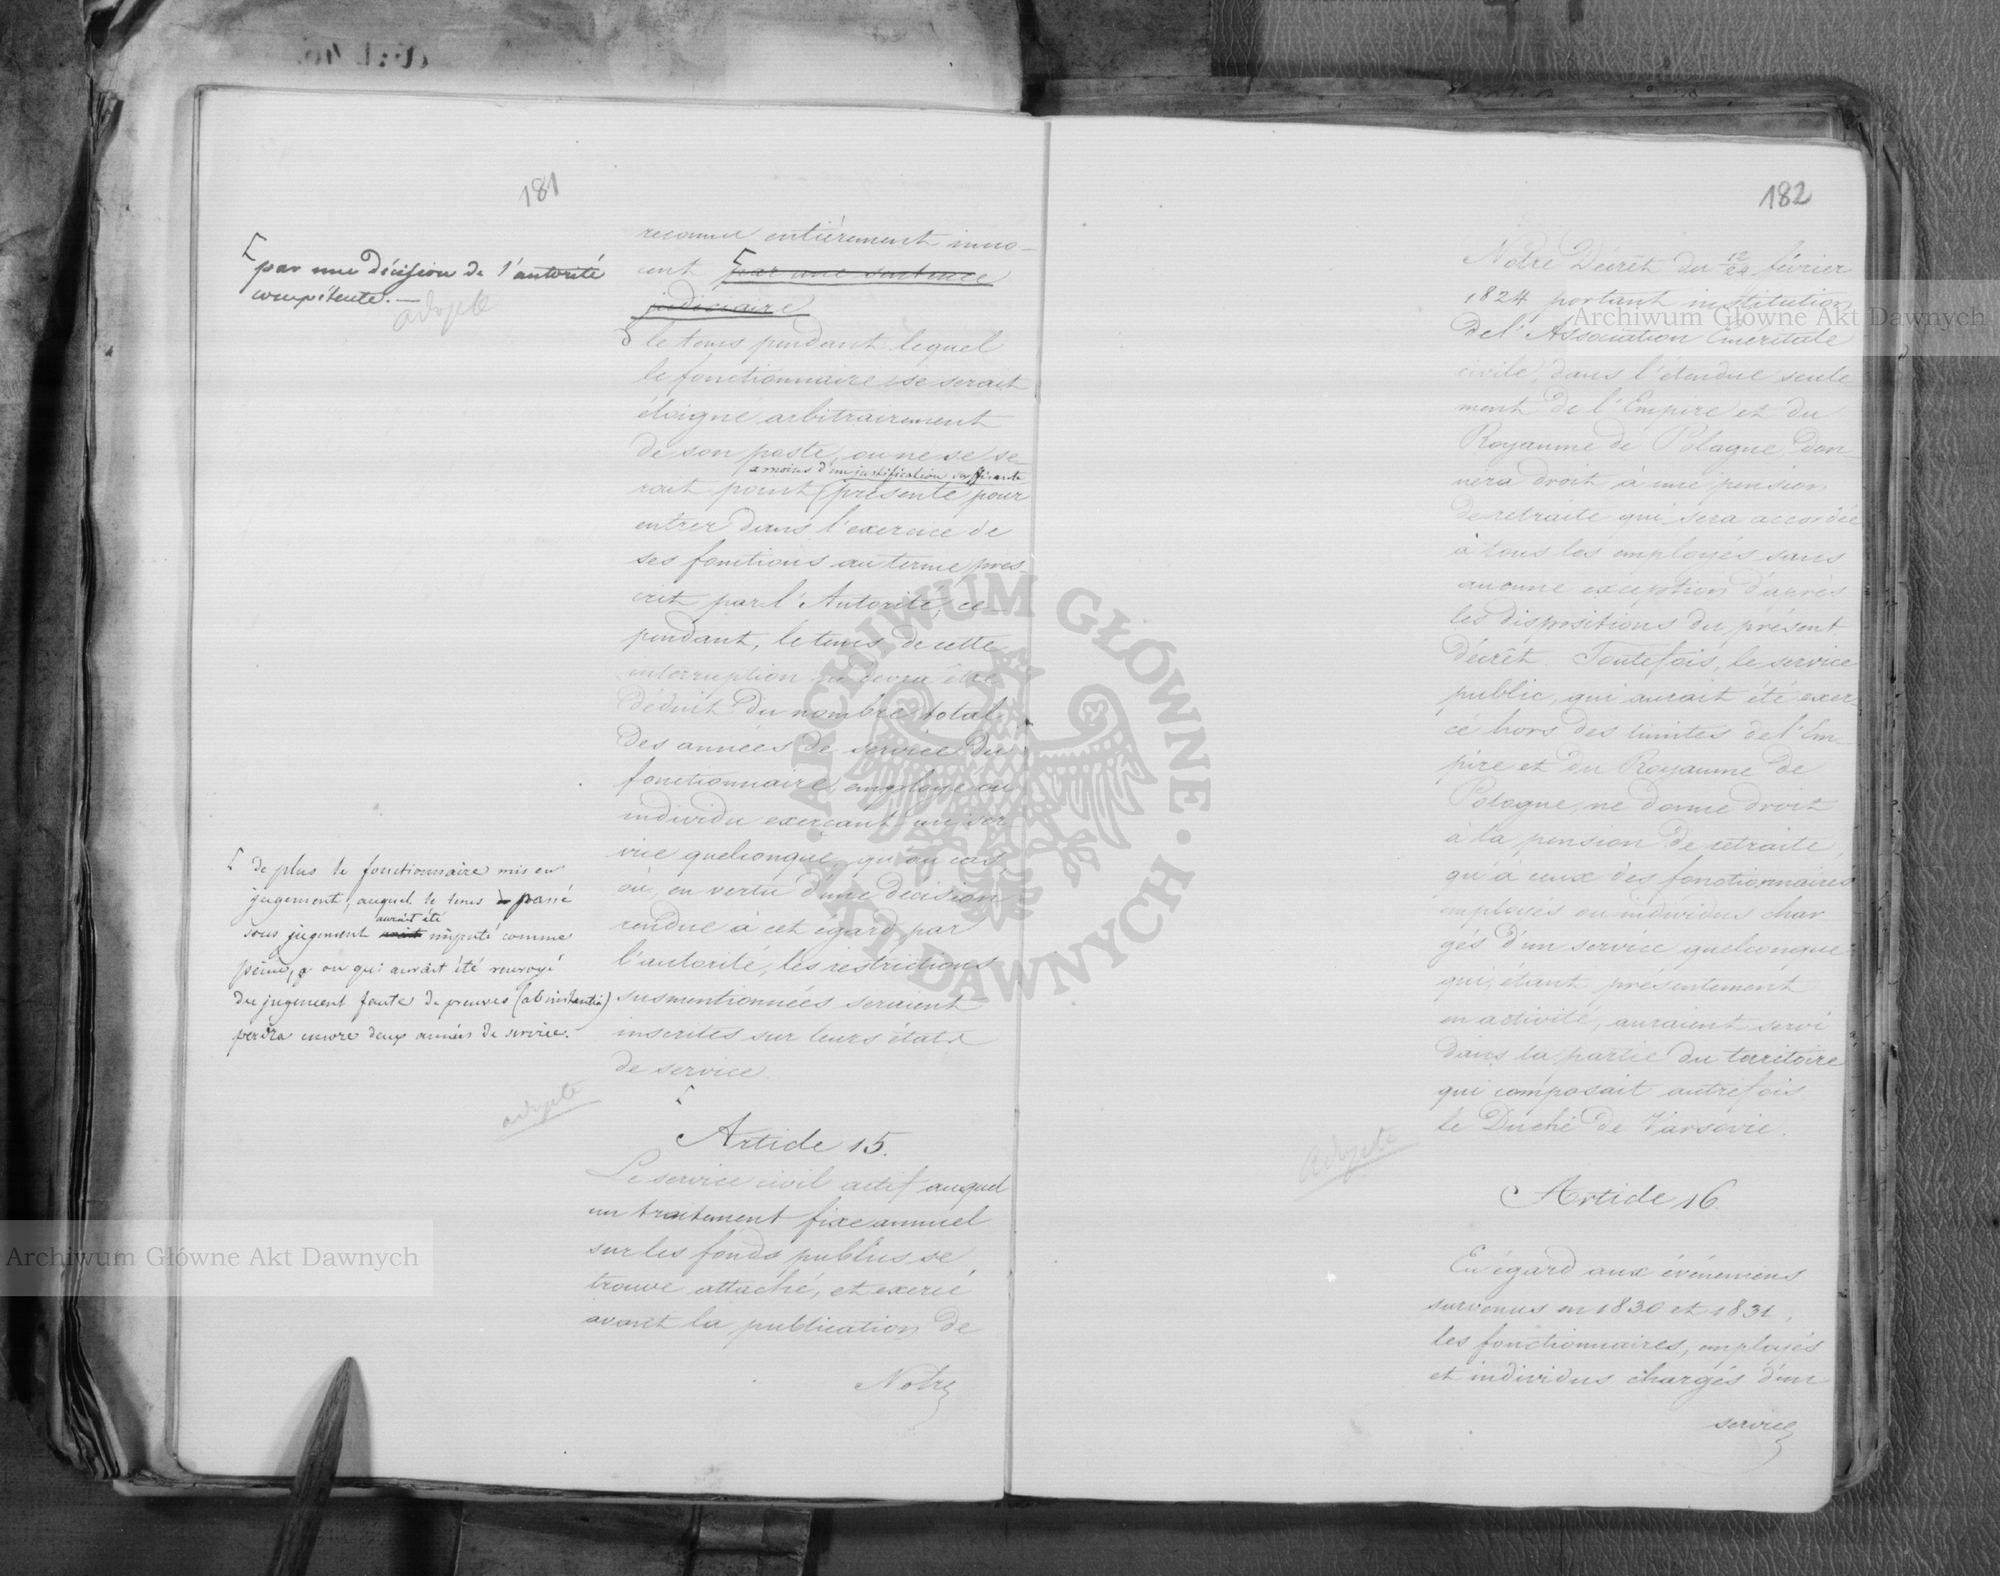 181
⌈par une décision de l'autorité
compétente. —
adopté
reconnu entièrement inno-
cent ⌈par une sentence
judiciaire
le tems pendant lequel
le fonctionnaire se serait
éloigné arbitrairement
de son poste, ou ne se se-
a moins d'un justification suffisante
rait point (présenté pour
entrer dans l'exercice de
ses fonctions au terme pres-
crit par l'Autorité, ce-
pendant, le tems de cette
interruption ne devra être
déduit du nombre total
des années de service du
fonctionnaire, employé ou
individu exerçant un ser-
vice quelconque, qu'au cas,
où, en vertu d'une décision
rendue à cet égard par
l'autorité, les restrictions
susmentionnées seraient
inscrites sur leurs états
de service.
⌈
⌈ de plus le fonctionnaire mis en
jugement, auquel le tems passé
aurait été
sous jugement imputé comme
peine, ou qui aurait été renvoyé
du jugement faute de preuves (ab instantiâ)
perdra encore deux années de service.
adopté
Article 15.
Le service civil actif auquel
un traitement fixe annuel
sur les fonds publics se
trouve attaché, et exercé
avant la publication de
Notre
182
Notre Décrêt du 12/24 février
1824 portant institution
de l'Association Eméritale
civile, dans l'étendue seule
ment de l'Empire et du
Royaume de Pologne, don-
nera droit à une pension
de retraite qui sera accordée
à tous les employés sans
aucune exception d'après
les dispositions du présent
décrêt. Toutefois, le service
public, qui aurait été exer-
cé hors des limites de l'Em-
pire et du Royaume de
Pologne, ne donne droit
à la pension de retraite,
qu'à ceux des fonctionnaires
employés ou individus char-
gés d'un service quelconque
qui, étant présentement
en activité, auraient servi
dans la partie du territoire
qui composait autrefois
le Duché de Varsovie.
adopté
Article 16.
Eu égard aux événemens
survenus en 1830 et 1831,
les fonctionnaires, employés
et individus chargés d'un
service
Archiwum Główne Akt Dawnych
Archiwum Główne Akt Dawnych
ARCHIWUM GŁÓWNE · AKT DAWNYCH ·